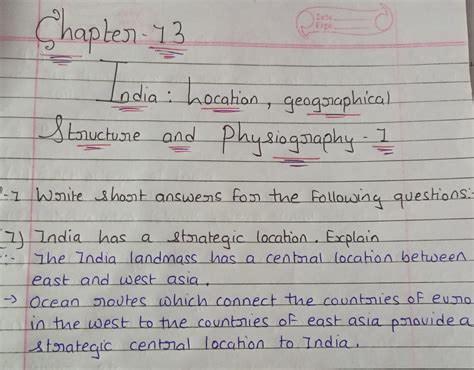 Date
Page
Chapter-13
India: Location, geographical
Structure and Physiography-1
-1 Write short answers for the following questions:-
1) India has a strategic location. Explain
:- The India landmass has a central location between
east and west asia.
→ Ocean routes which connect the countries of euro
in the west to the countries of east asia provide a
strategic central location to India.